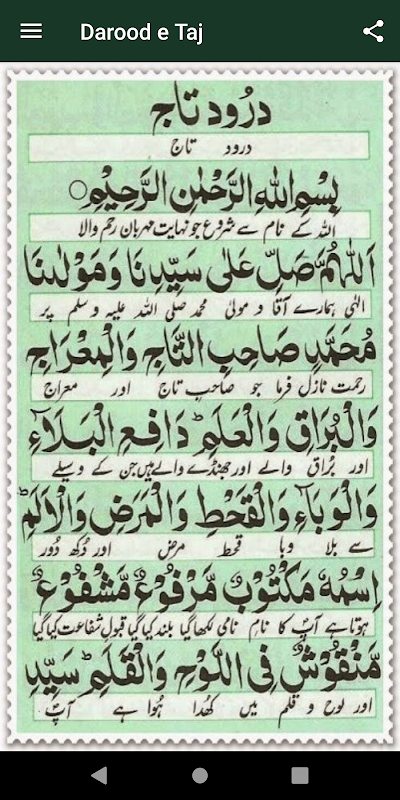 Darood e Taj
درُود تاج
درود تاج
بِسْمِ اللهِ الرَّحْمٰنِ الرَّحِيْمِ
اللہ کے نام سے شروع جو نہایت مہربان رحم والا
اَللّٰهُمَّ صَلِّ عَلٰى سَيِّدِنَا وَمَوْلٰىنَا
الٰہی ہمارے آقا و مولیٰ محمد صلی اللہ علیہ و سلم پر
مُحَمَّدٍ صَاحِبِ التَّاجِ وَالْمِعْرَاجِ
رحمت نازل فرما جو صاحب تاج اور معراج
وَالْبُرَاقِ وَالْعَلَمِ ؕ دَافِعِ الْبَلَآءِ
اور بُراق والے اور جھنڈے والے ہیں جن کے وسیلے
وَالْوَبَآءِ وَالْقَحْطِ وَالْمَرَضِ وَالْاَلَمِ ؕ
سے بلا وبا قحط مرض اور دُکھ دُور
اِسْمُهٗ مَكْتُوْبٌ مَّرْفُوْعٌ مَّشْفُوْعٌ
ہوتا ہے آپؐ کا نام نامی لکھا گیا بلند کیا گیا قبول شفاعت کیا گیا
مَّنْقُوْشٌ فِى اللَّوْحِ وَالْقَلَمِ ؕ سَيِّدِ
اور لوح و قلم میں کھُدا ہُوا ہے آپؐ